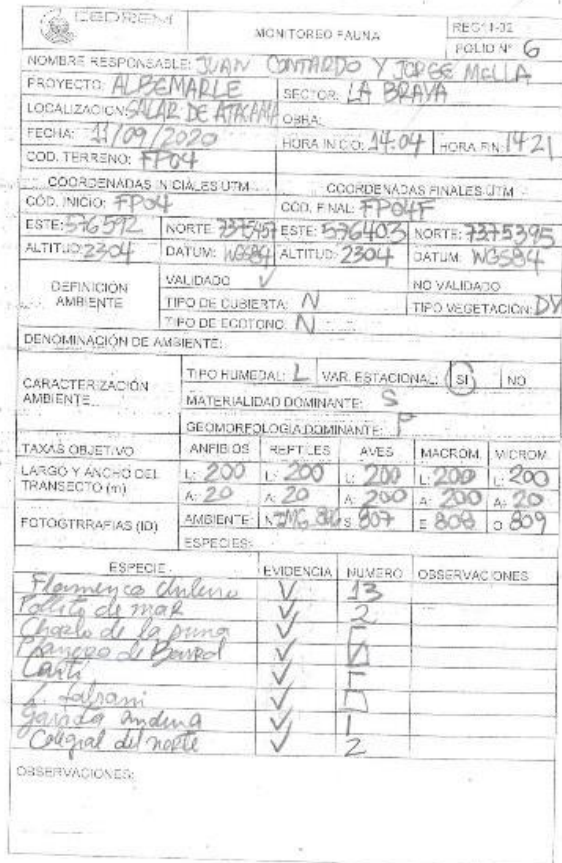 CEDREM
MONITOREO FAUNA
REG11-02
FOLIO N° 6
NOMBRE RESPONSABLE: JUAN CONTARDO Y JORGE MELLA
PROYECTO: ALBEMARLE SECTOR: LA BRAVA
LOCALIZACION: SALAR DE ATACAMA OBRA:
FECHA: 11/09/2020 HORA INICIO: 14:04 HORA FIN: 14 21
COD. TERRENO: FP04
COORDENADAS INICIALES UTM COORDENADAS FINALES UTM
CÓD. INICIO: FP04 CÓD. FINAL: FP04F
ESTE: 576592 NORTE: ESTE: 576403 NORTE: 7375395
ALTITUD: 2304 DATUM: WGS84 ALTITUD: 2304 DATUM: WGS84
DEFINICIÓN AMBIENTE
VALIDADO ✓ NO VALIDADO
TIPO DE CUBIERTA: N TIPO VEGETACIÓN: DV
TIPO DE ECOTONO: N
DENOMINACIÓN DE AMBIENTE:
CARACTERIZACIÓN AMBIENTE
TIPO HUMEDAL: L VAR. ESTACIONAL: SI NO
MATERIALIDAD DOMINANTE: S
GEOMORFOLOGÍA DOMINANTE: P
TAXAS OBJETIVO ANFIBIOS REPTILES AVES MACROM. MICROM.
LARGO Y ANCHO DEL TRANSECTO (m)
L: 200 L: 200 L: 200 L: 200 L: 200
A: 20 A: 20 A: 200 A: 200 A: 20
FOTOGTRRAFIAS (ID) AMBIENTE: N IMG 806 S 807 E 808 O 809
ESPECIES:
ESPECIE EVIDENCIA NUMERO OBSERVACIONES
Flamenco chileno ✓ 13
Pollito de mar ✓ 2
Chorlo de la puna ✓
✓
Caití ✓
L. fabiani ✓
Gaviota andina ✓ 1
Colegial del norte ✓ 2
OBSERVACIONES: